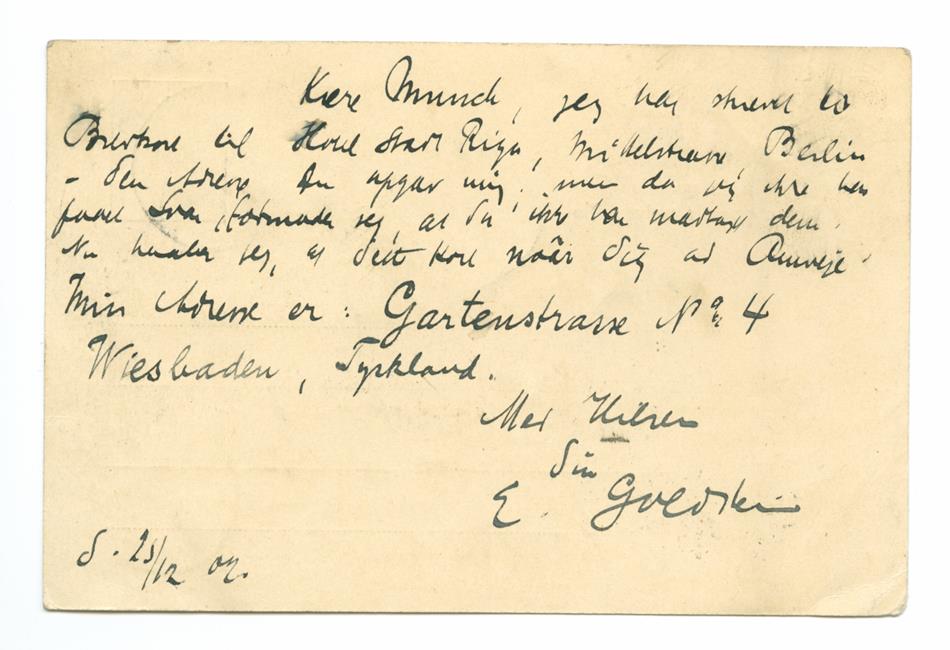 Kære Munch, jeg har skrevet to
Brevkort til Hotel Stadt Riga, Mittelstrasse, Berlin
– den Adresse Du opgav mig; men da jeg ikke har
faaet Svar, formoder jeg, at Du ikke har modtaget dem.
Nu haaber jeg, at dette Kort naar Dig ad Omveje.
Min Adresse er: Gartenstrasse No. 4
Wiesbaden, Tyskland.
Med Hilsen
Din
E. Goldstein
d. 25/12 07.